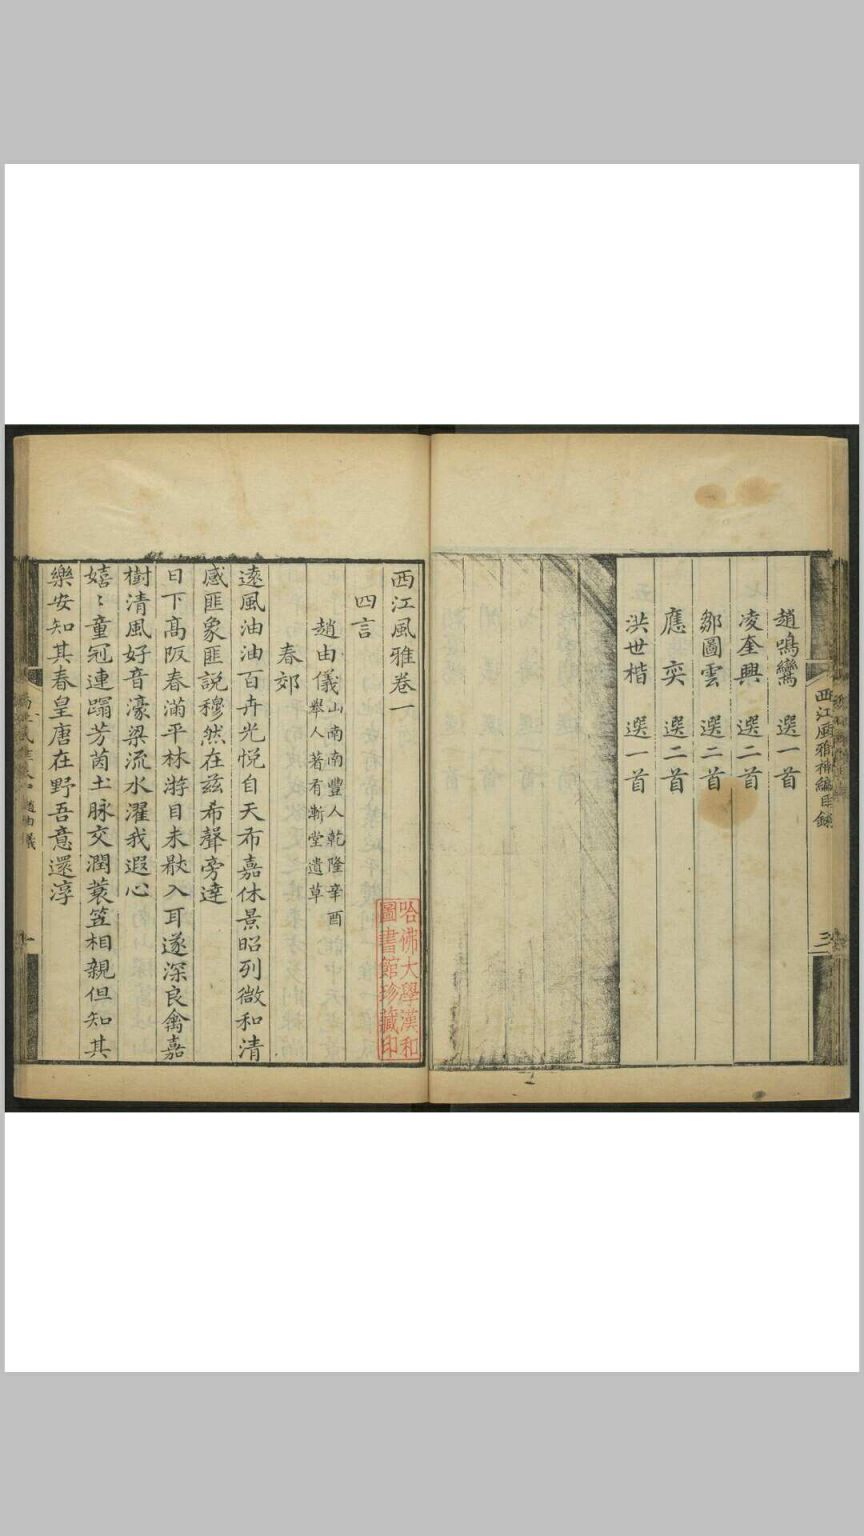 趙鳴鸞 選一首
凌奎興 選二首
鄒圖雲 選二首
應奕 選二首
洪世楷 選一首
西江風雅補編目錄 三
西江風雅卷一
四言
趙由儀 山南南豐人乾隆辛酉
舉人著有漸堂遺草
春郊
遠風油油百卉光悅自天布嘉休景昭列微和清
感匪象匪說穆然在茲希聲旁達
日下高阪春滿平林游目未厭入耳遂深良禽嘉
樹清風好音濠梁流水濯我遐心
嬉〻童冠連蹋芳茵土脉交潤蓑笠相親但知其
樂安知其春皇唐在野吾意還淳
趙由儀
一
哈佛大學漢和
圖書館珍藏印